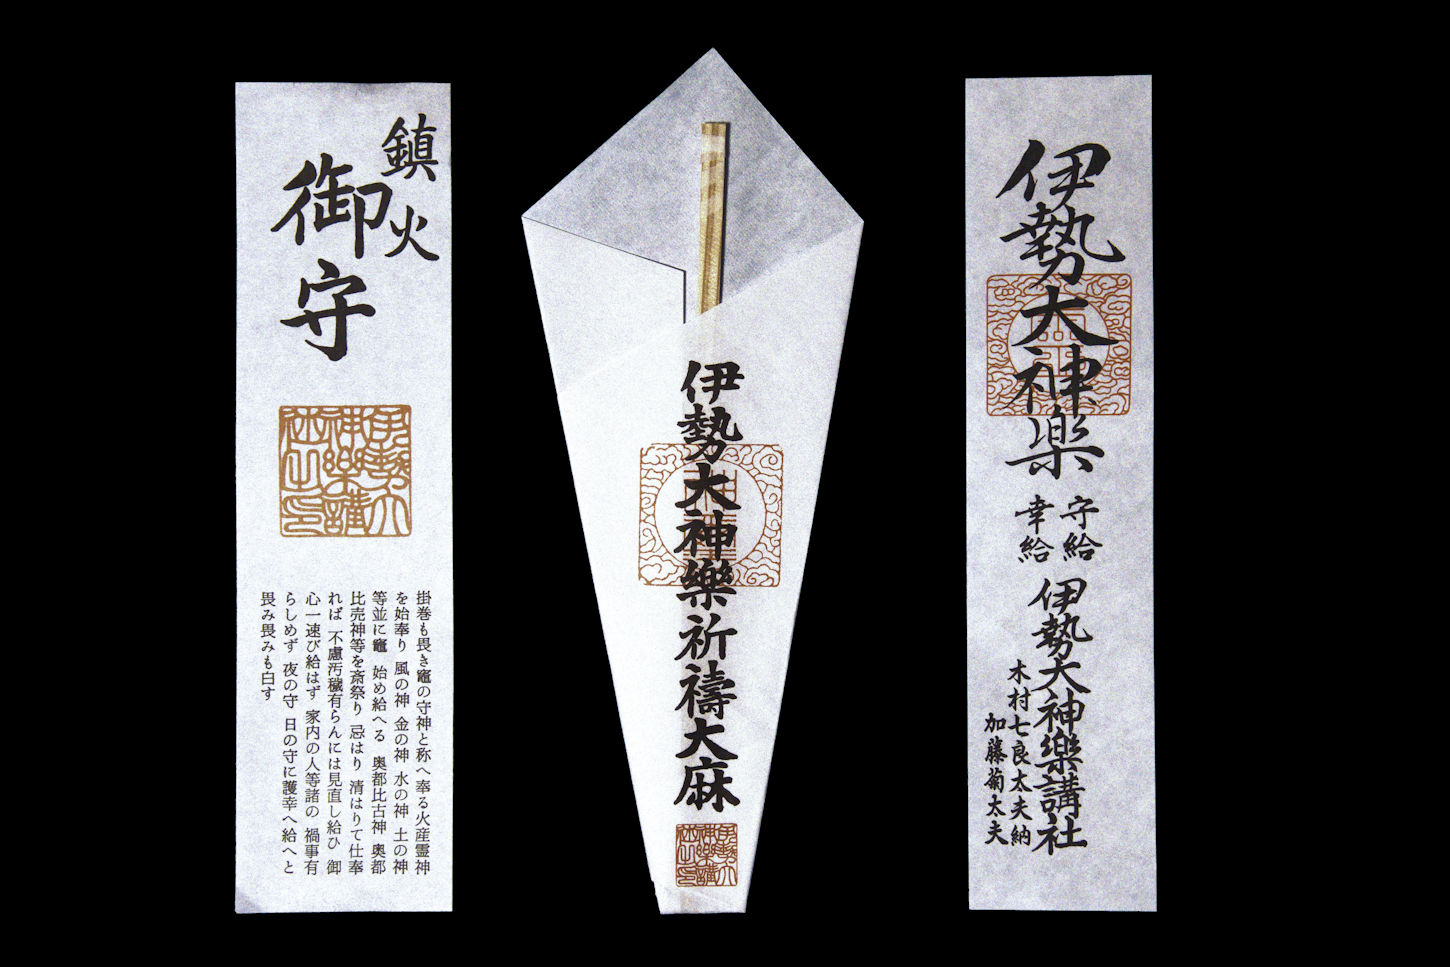 鎮火
御守
掛巻も畏き竈の守神と称へ奉る火産霊神
を始奉り 風の神 金の神 水の神 土の神
等並に竈 始め給へる 奥都比古神 奥都
比売神等を斎祭り 忌はり 清はりて仕奉
れば 不慮汚穢有らんには見直し給ひ 御
心一速び給はず 家内の人等諸の 禍事有
らしめず 夜の守 日の守に護幸へ給へと
畏み畏みも白す
伊勢大神樂祈禱大麻
伊勢大神楽
守給
幸給
伊勢大神樂講社
木村七良太夫納
加藤菊太夫